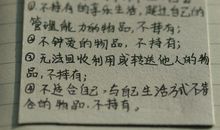 不持有的享乐生活,超过自己的
管理能力的物品,不持有;
②不钟爱的物品,不持有;
③无法回收利用或转送他人的物
品,不持有;
④不适合自己,与自己生活方式不符
合的物品,不持有。